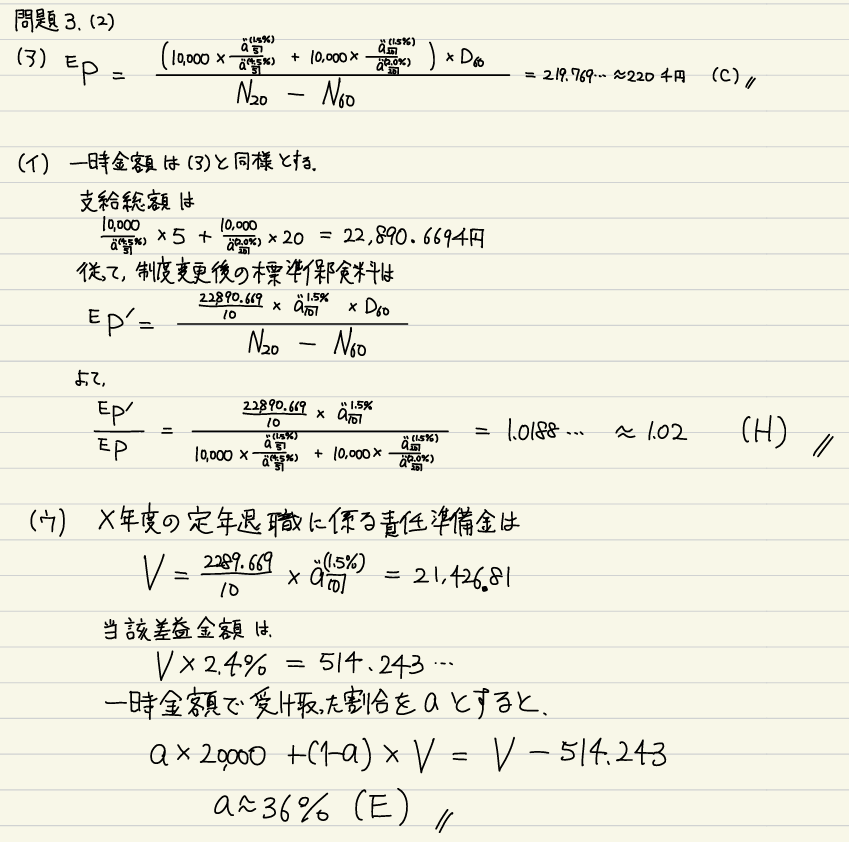 問題3.(2)
(ア) ᴱP = (10,000 × ä(1.5%)5| / ä(4.5%)5| + 10,000 × ä(1.5%)20| / ä(2.0%)20|) × D60 / N20 − N60 = 219.769… ≈ 220千円 (C)〃
(イ) 一時金額は(ア)と同様とする.
支給総額は
10,000 / ä(4.5%)5| × 5 + 10,000 / ä(2.0%)20| × 20 = 22,890.6694円
従って, 制度変更後の標準保険料は
ᴱP′ = 22890.669 / 10 × ä1.5%10| × D60 / N20 − N60
よって,
ᴱP′ / ᴱP = 22890.669 / 10 × ä1.5%10| / 10,000 × ä(1.5%)5| / ä(4.5%)5| + 10,000 × ä(1.5%)20| / ä(2.0%)20| = 1.0188… ≈ 1.02 (H)〃
(ウ) X年度の定年退職に係る責任準備金は
V = 2289.669 / 10 × ä(1.5%)10| = 21,426.81
当該差益金額は.
V × 2.4% = 514.243…
一時金額で受け取った割合をaとすると、
a × 20,000 + (1−a) × V = V − 514.243
a ≈ 36% (E)〃